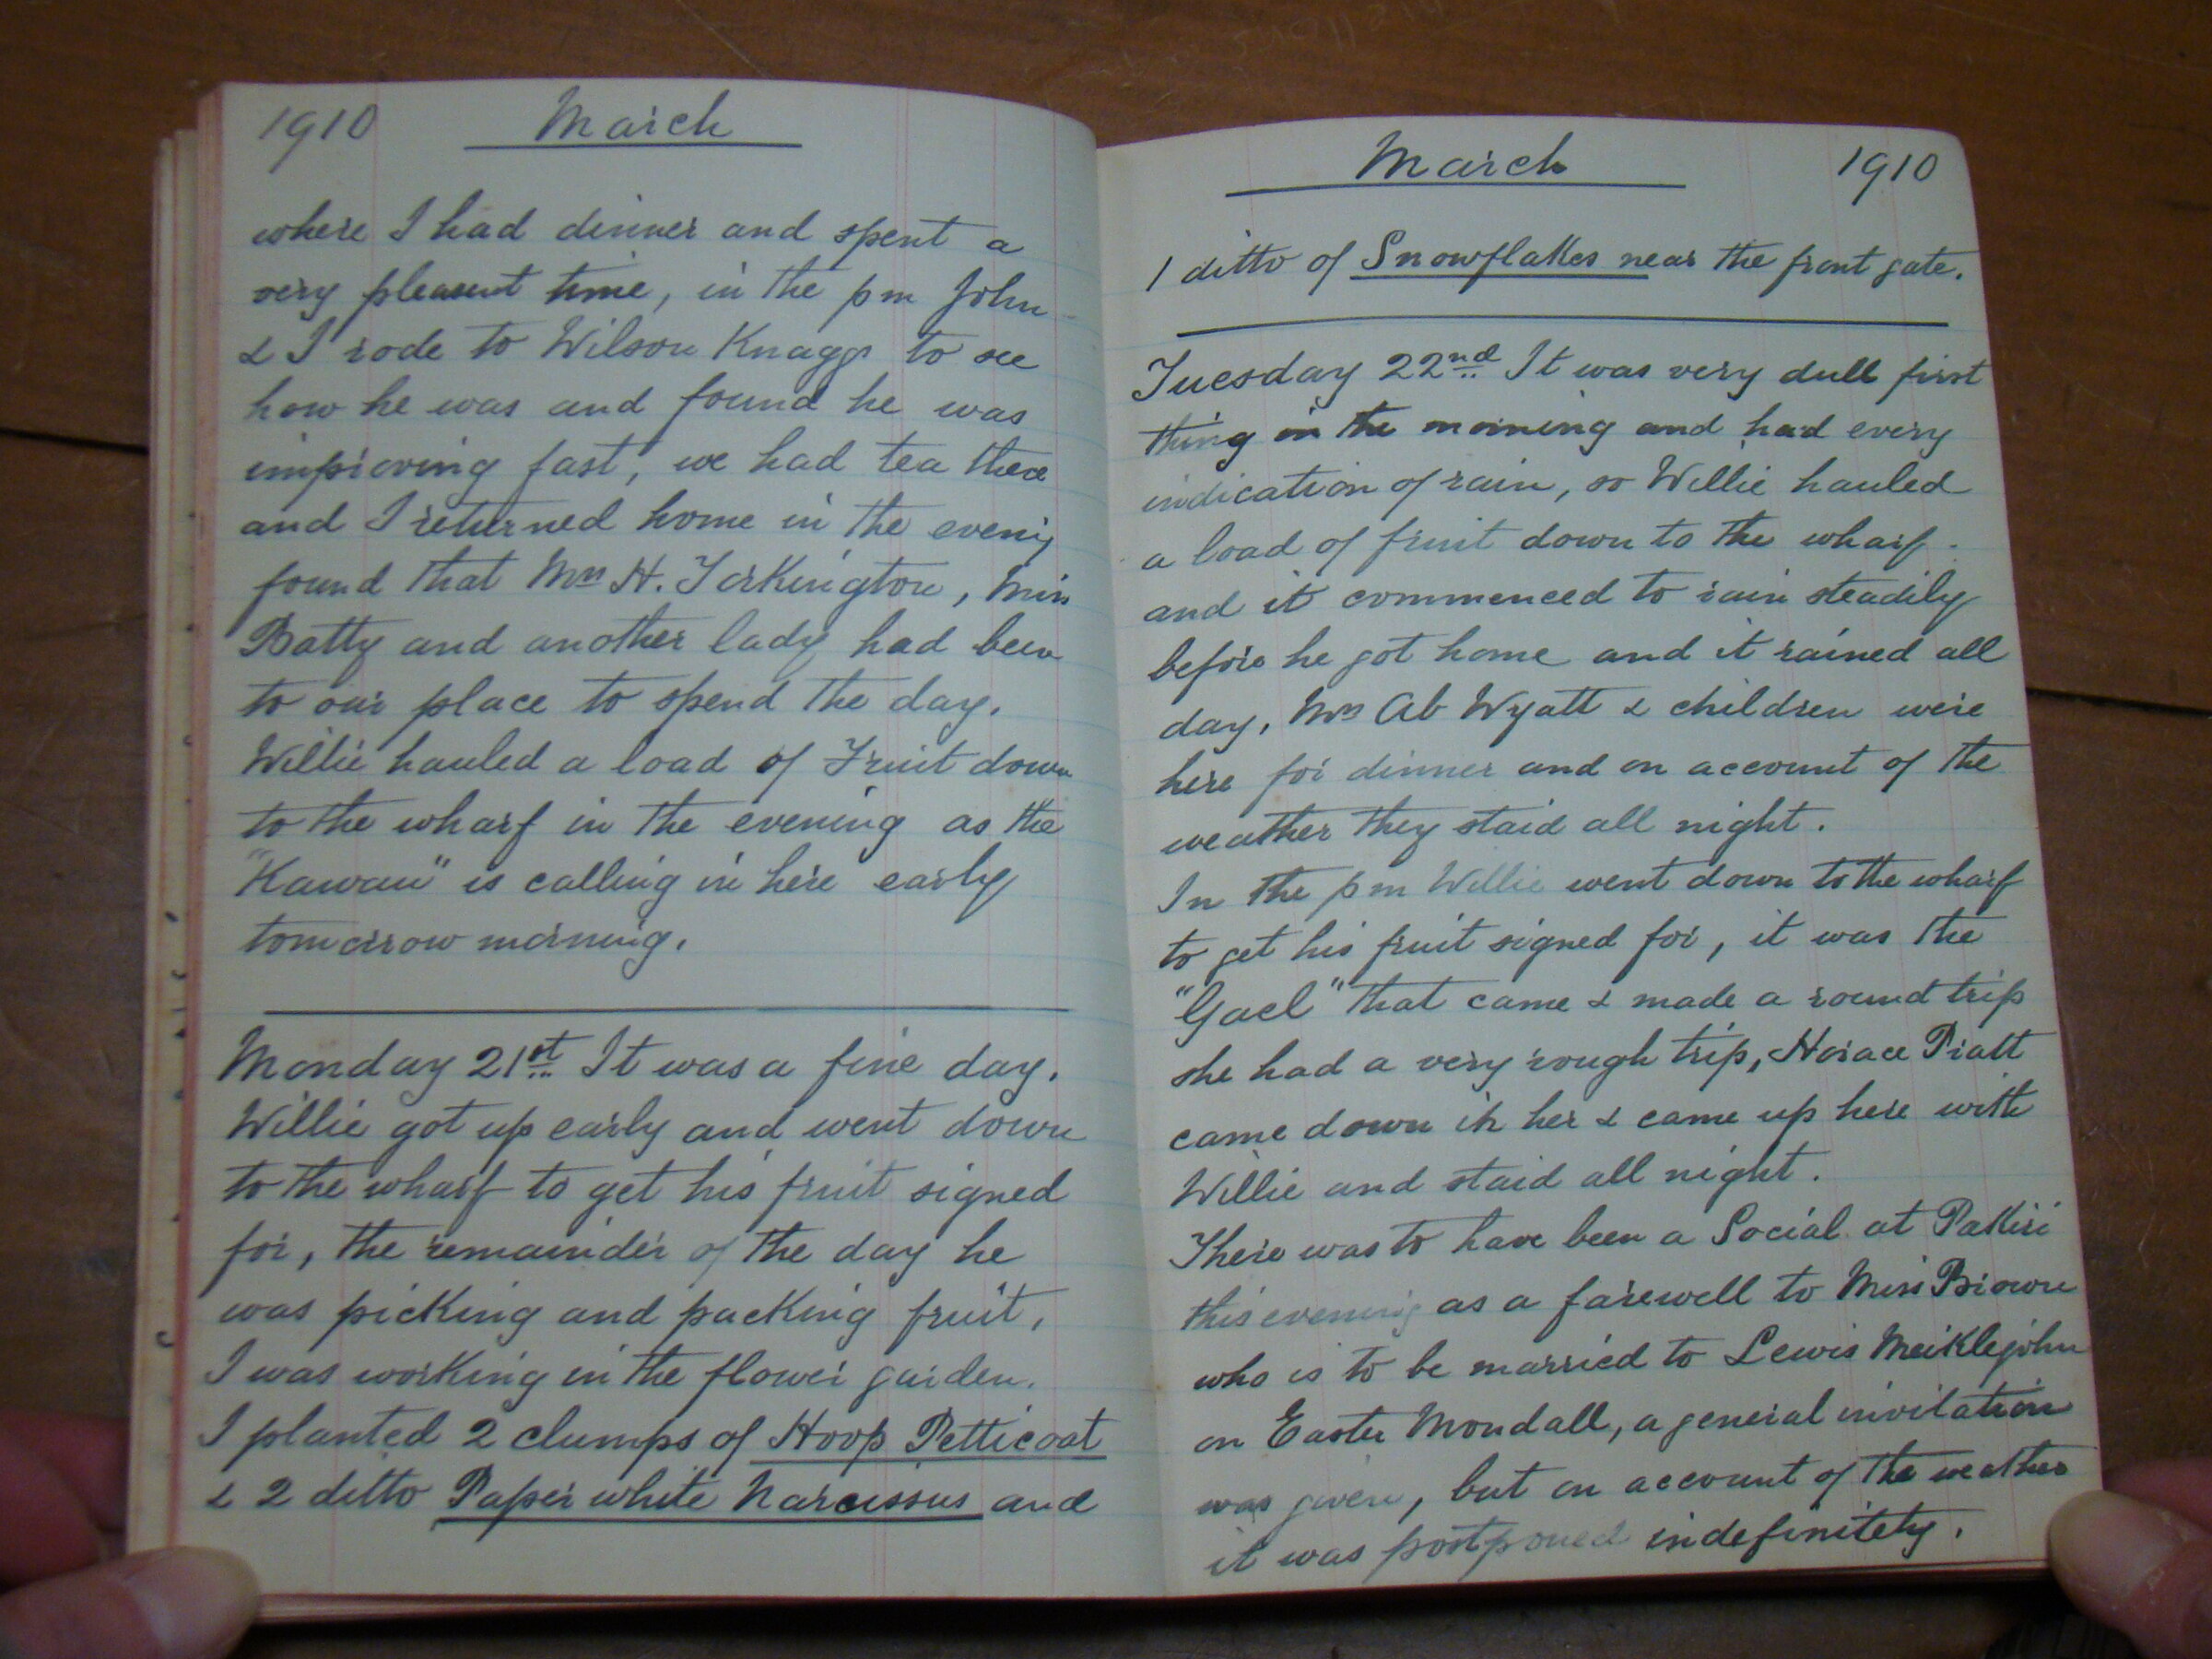 1910 March
where I had dinner and spent a
very pleasent time, in the pm John
& I rode to Wilson Knaggs to see
how he was and found he was
improving fast, we had tea there
and I returned home in the evenig
found that Mrs H. Torkington, Miss
Batty and another lady had been
to our place to spend the day.
Willie hauled a load of Fruit down
to the wharf in the evening as the
"Kawau" is calling in here early
tomorrow morning.
Monday 21st It was a fine day.
Willie got up early and went down
to the wharf to get his fruit signed
for, the remainder of the day he
was picking and packing fruit,
I was working in the flower garden.
I planted 2 clumps of Hoop Petticoat
& 2 ditto Paper white Narcissus and
March 1910
1 ditto of Snowflakes near the front gate.
Tuesday 22nd It was very dull first
thing in the morning and had every
indication of rain, so Willie hauled
a load of fruit down to the wharf.
and it commenced to rain steadily
before he got home and it rained all
day, Mrs Ab Wyatt & children were
here for dinner and on account of the
weather they staid all night.
In the pm Willie went down to the wharf
to get his fruit signed for, it was the
"Gael" that came & made a round trip
she had a very rough trip, Horace Pratt
came down in her & came up here with
Willie and staid all night.
There was to have been a Social at Pakiri
this evening as a farewell to Miss Brown
who is to be married to Lewis Meiklejohn
on Easter Mondall, a general invitation
was given, but on account of the weather
it was postponed indefinitely.